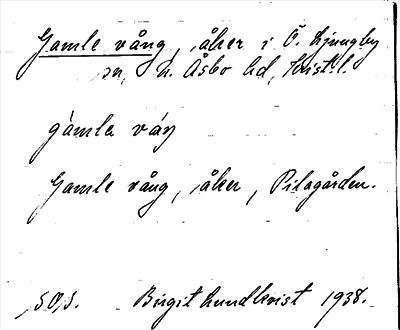 Gamle vång, åker i Ö. Ljungby
sn, N. Åsbo hd, Krist. l.
gàmla váŋ
Gamle vång, åker, Pilagården.
SOS. Birgit Lundkvist 1938.